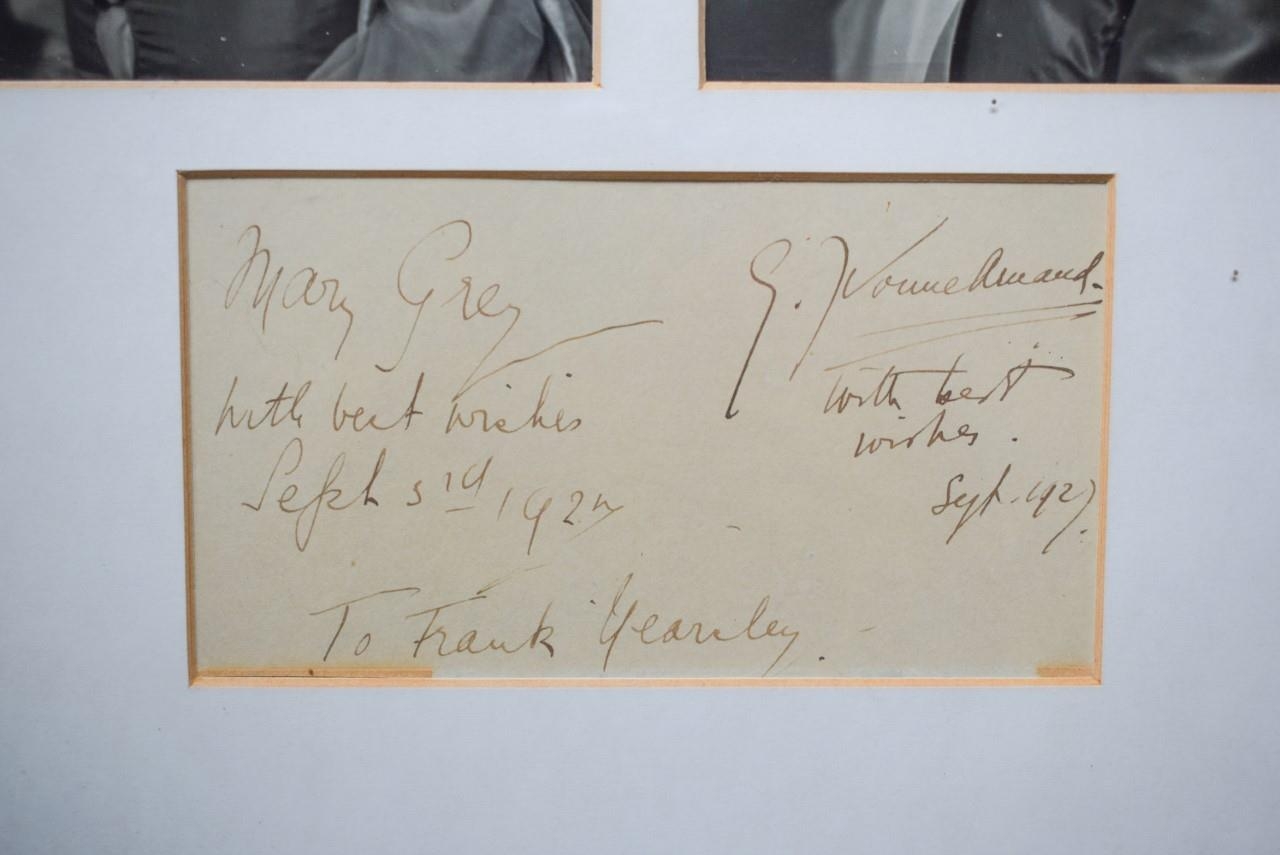 Mary Grey
With best wishes
Sept 3rd 1927
G. Yvonne Arnaud.
With best
wishes.
Sept. 1927.
To Frank Yearsley.